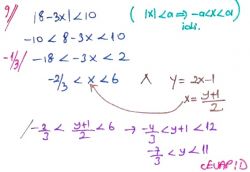 9/ |8-3x|<10 ( |x|<a ⇒ -a<x<a )
-10 < 8-3x < 10
-1/3/ -18 < -3x < 2
-2/3 < x < 6 ∧ y = 2x-1
x = (y+1)/2
/ -2/3 < (y+1)/2 < 6 → -4/3 < y+1 < 12
-7/3 < y < 11
CEVAP: D